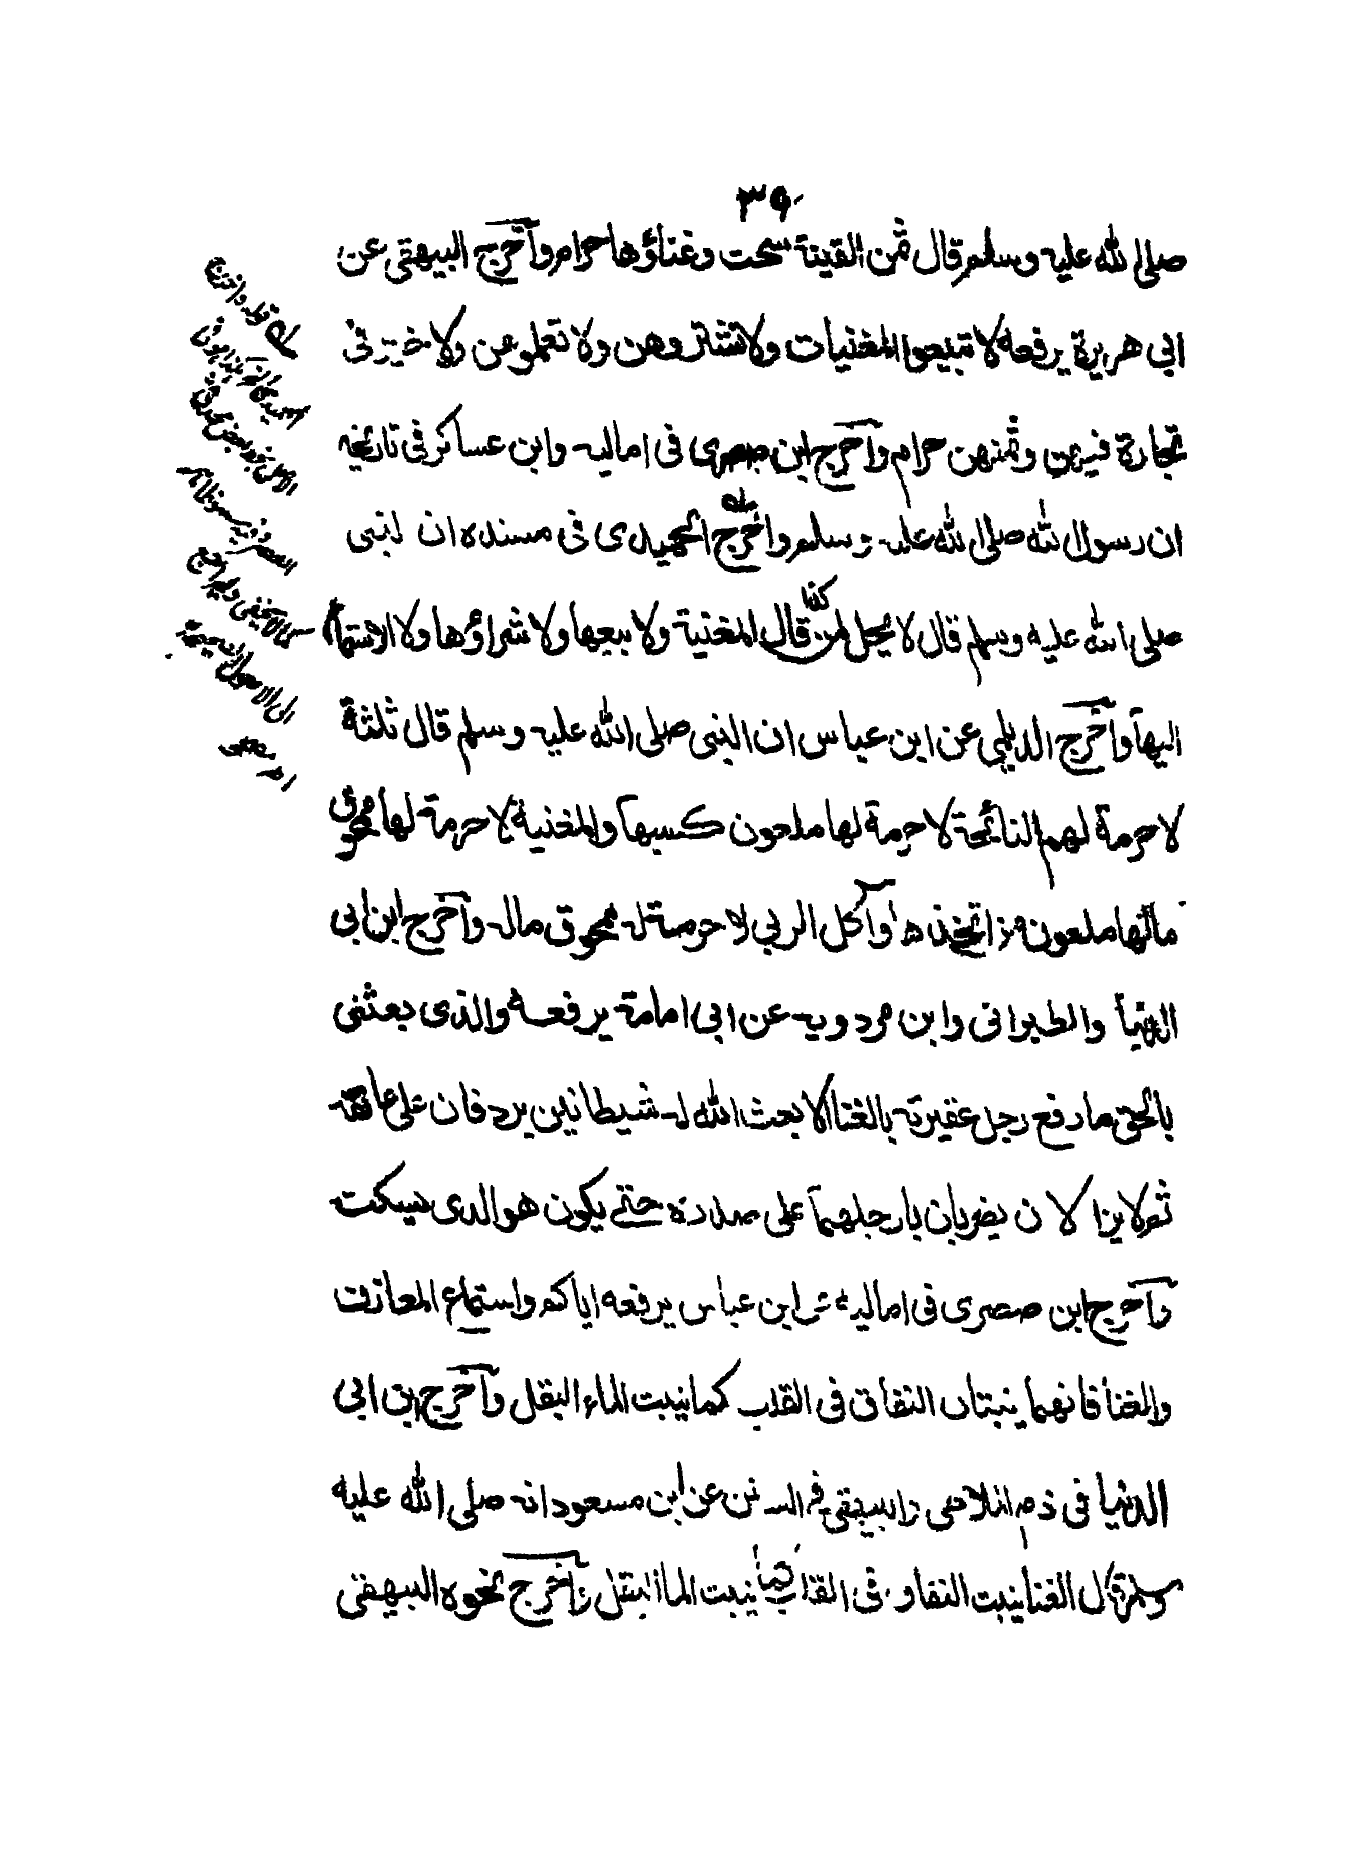 ٣٩
صلى الله عليه وسلم قال ثمن القينة سحت وغناؤها حرام وآخرج البيهقى عن
ابى هريرة يرفعه لا تبيعوا المغنيات ولا تشتروهن ولا تعلموهن ولا خير فى
تجارة فيهن وثمنهن حرام وآخرج ابن صصرى فى اماليه وابن عساكر فى تاريخه
ان رسول الله صلى الله عليه وسلم واخرج الحميدى فى مسنده ان لنبى
صلى الله عليه وسلم قال لا يحل ثمن كذا قال المغنية ولا بيعها ولا شراؤها ولا الاستماع
اليها وآخرج الديلمى عن ابن عباس ان النبى صلى الله عليه وسلم قال ثلثة
لا حرمة لهم النائحة لا حرمة لها ملعون كسبها والمغنية لا حرمة لها ممحوق
مالها ملعون من اتخذها وآكل الربى لا حرمة له ممحوق ماله وآخرج ابن ابى
الدنيا والطبرانى وابن مردويه عن ابى امامة يرفعه والذى بعثنى
بالحق ما رفع رجل عقيرته بالغنا الا بعث الله له شيطانين يردفان على عاتقه
ثم لا يزالان يضربان بارجلهما على صدره حتى يكون هو الذى يسكت
وآخرج ابن صصرى فى اماليه عن ابن عباس يرفعه اياكم واستماع المعازف
والغنا فانهما ينبتان النفاق فى القلب كما ينبت الماء البقل وآخرج ابن ابى
الدنيا فى ذم الملاهى والبيهقى فى السنن عن ابن مسعود انه صلى الله عليه
وسلم قال الغنا ينبت النفاق فى القلب كما ينبت الما البقل وآخرج نحوه البيهقى
قوله واخرج